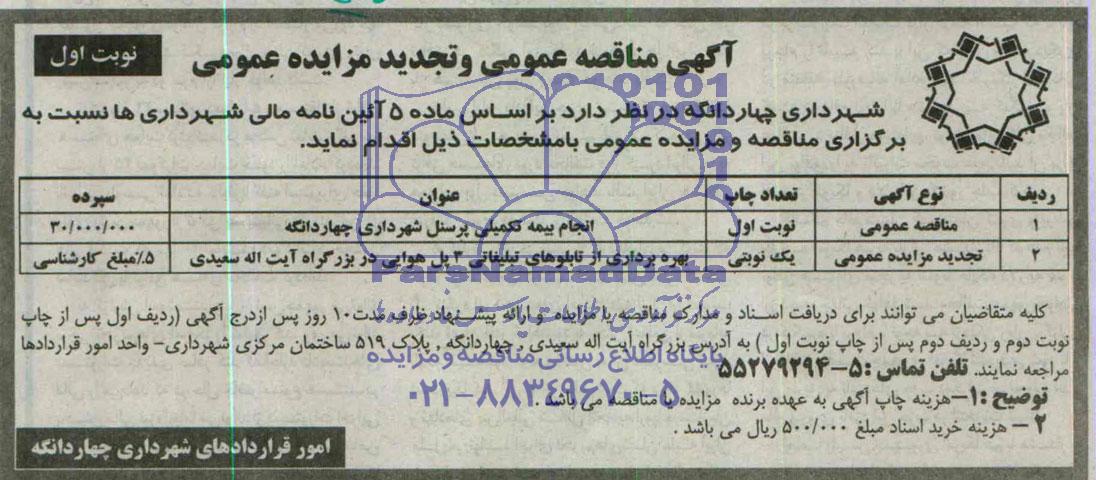 آگهی مناقصه عمومی وتجدید مزایده عمومی
نوبت اول
شهرداری چهاردانگه در نظر دارد بر اساس ماده ۵ آئین نامه مالی شهرداری ها نسبت به
برگزاری مناقصه و مزایده عمومی بامشخصات ذیل اقدام نماید.
ردیف نوع آگهی تعداد چاپ عنوان سپرده
۱ مناقصه عمومی نوبت اول انجام بیمه تکمیلی پرسنل شهرداری چهاردانگه ۳۰/۰۰۰/۰۰۰
۲ تجدید مزایده عمومی یک نوبتی بهره برداری از تابلوهای تبلیغاتی ۳ پل هوایی در بزرگراه آیت اله سعیدی ۵٪مبلغ کارشناسی
کلیه متقاضیان می توانند برای دریافت اسناد و مدارک مناقصه یا مزایده و ارائه پیشنهاد ظرف مدت۱۰ روز پس ازدرج آگهی (ردیف اول پس از چاپ
نوبت دوم و ردیف دوم پس از چاپ نوبت اول ) به آدرس بزرگراه آیت اله سعیدی , چهاردانگه , پلاک ۵۱۹ ساختمان مرکزی شهرداری- واحد امور قراردادها
مراجعه نمایند. تلفن تماس :۵-۵۵۲۷۹۲۹۴
توضیح :۱-هزینه چاپ آگهی به عهده برنده مزایده یا مناقصه می باشد .
۲ - هزینه خرید اسناد مبلغ ۵۰۰/۰۰۰ ریال می باشد .
امور قراردادهای شهرداری چهاردانگه
ParsNamadData
پایگاه اطلاع رسانی مناقصه و مزایده
۰۲۱-۸۸۳۴۹۶۷۰-۵